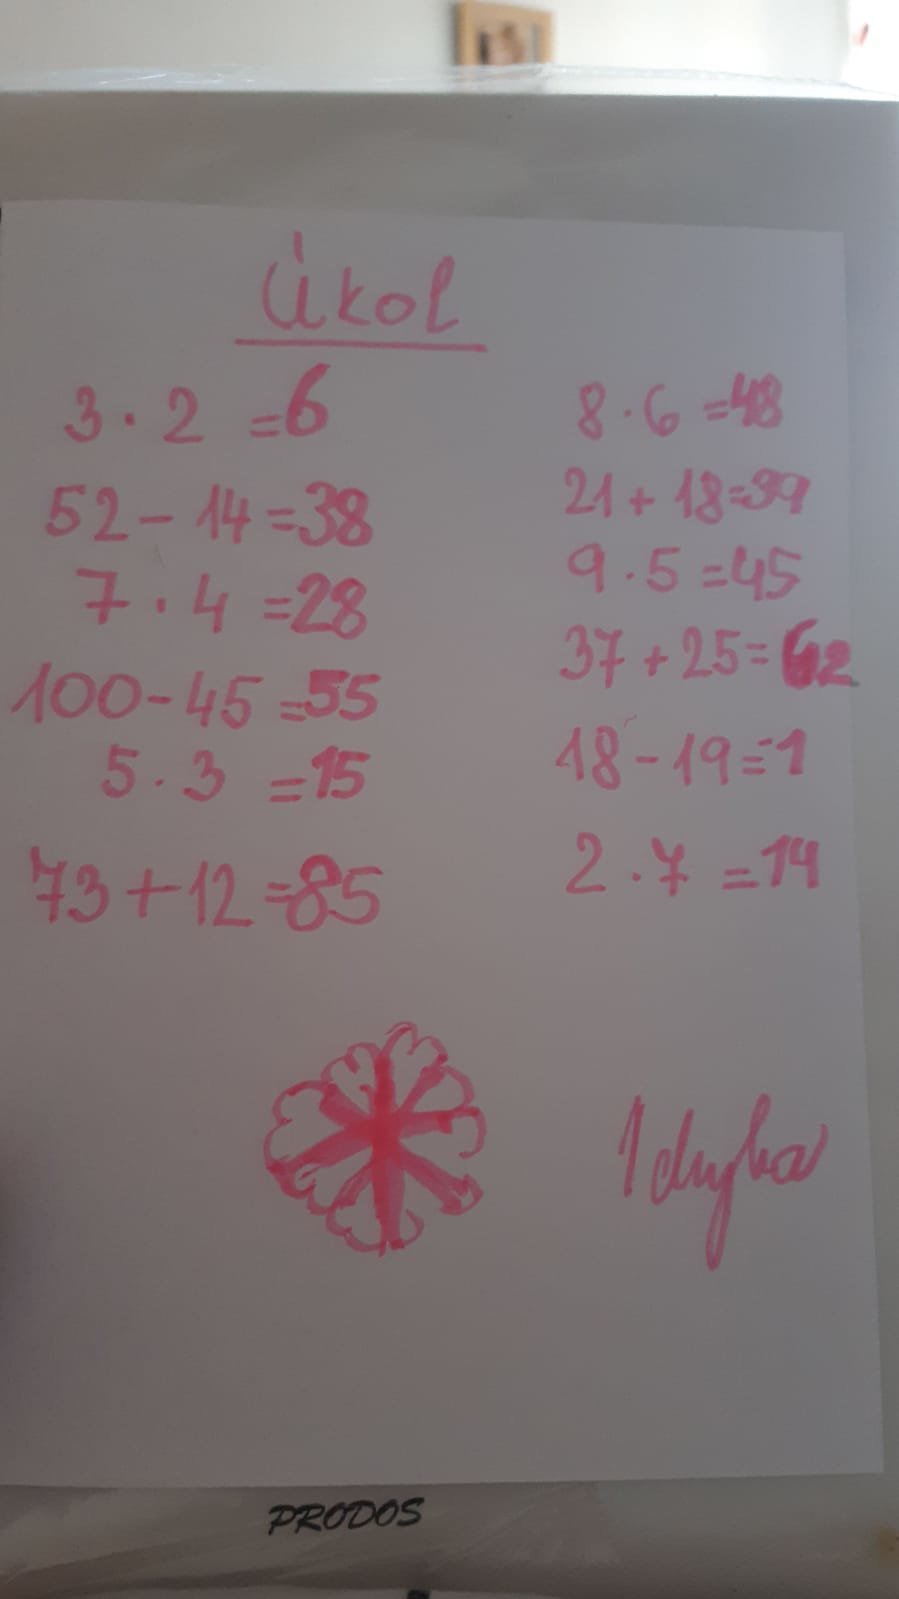 Úkol
3 · 2 = 6
52 - 14 = 38
7 · 4 = 28
100 - 45 = 55
5 · 3 = 15
73 + 12 = 85
8 · 6 = 48
21 + 18 = 39
9 · 5 = 45
37 + 25 = 62
18 - 19 = -1
2 · 7 = 14
1 chyba
PRODOS